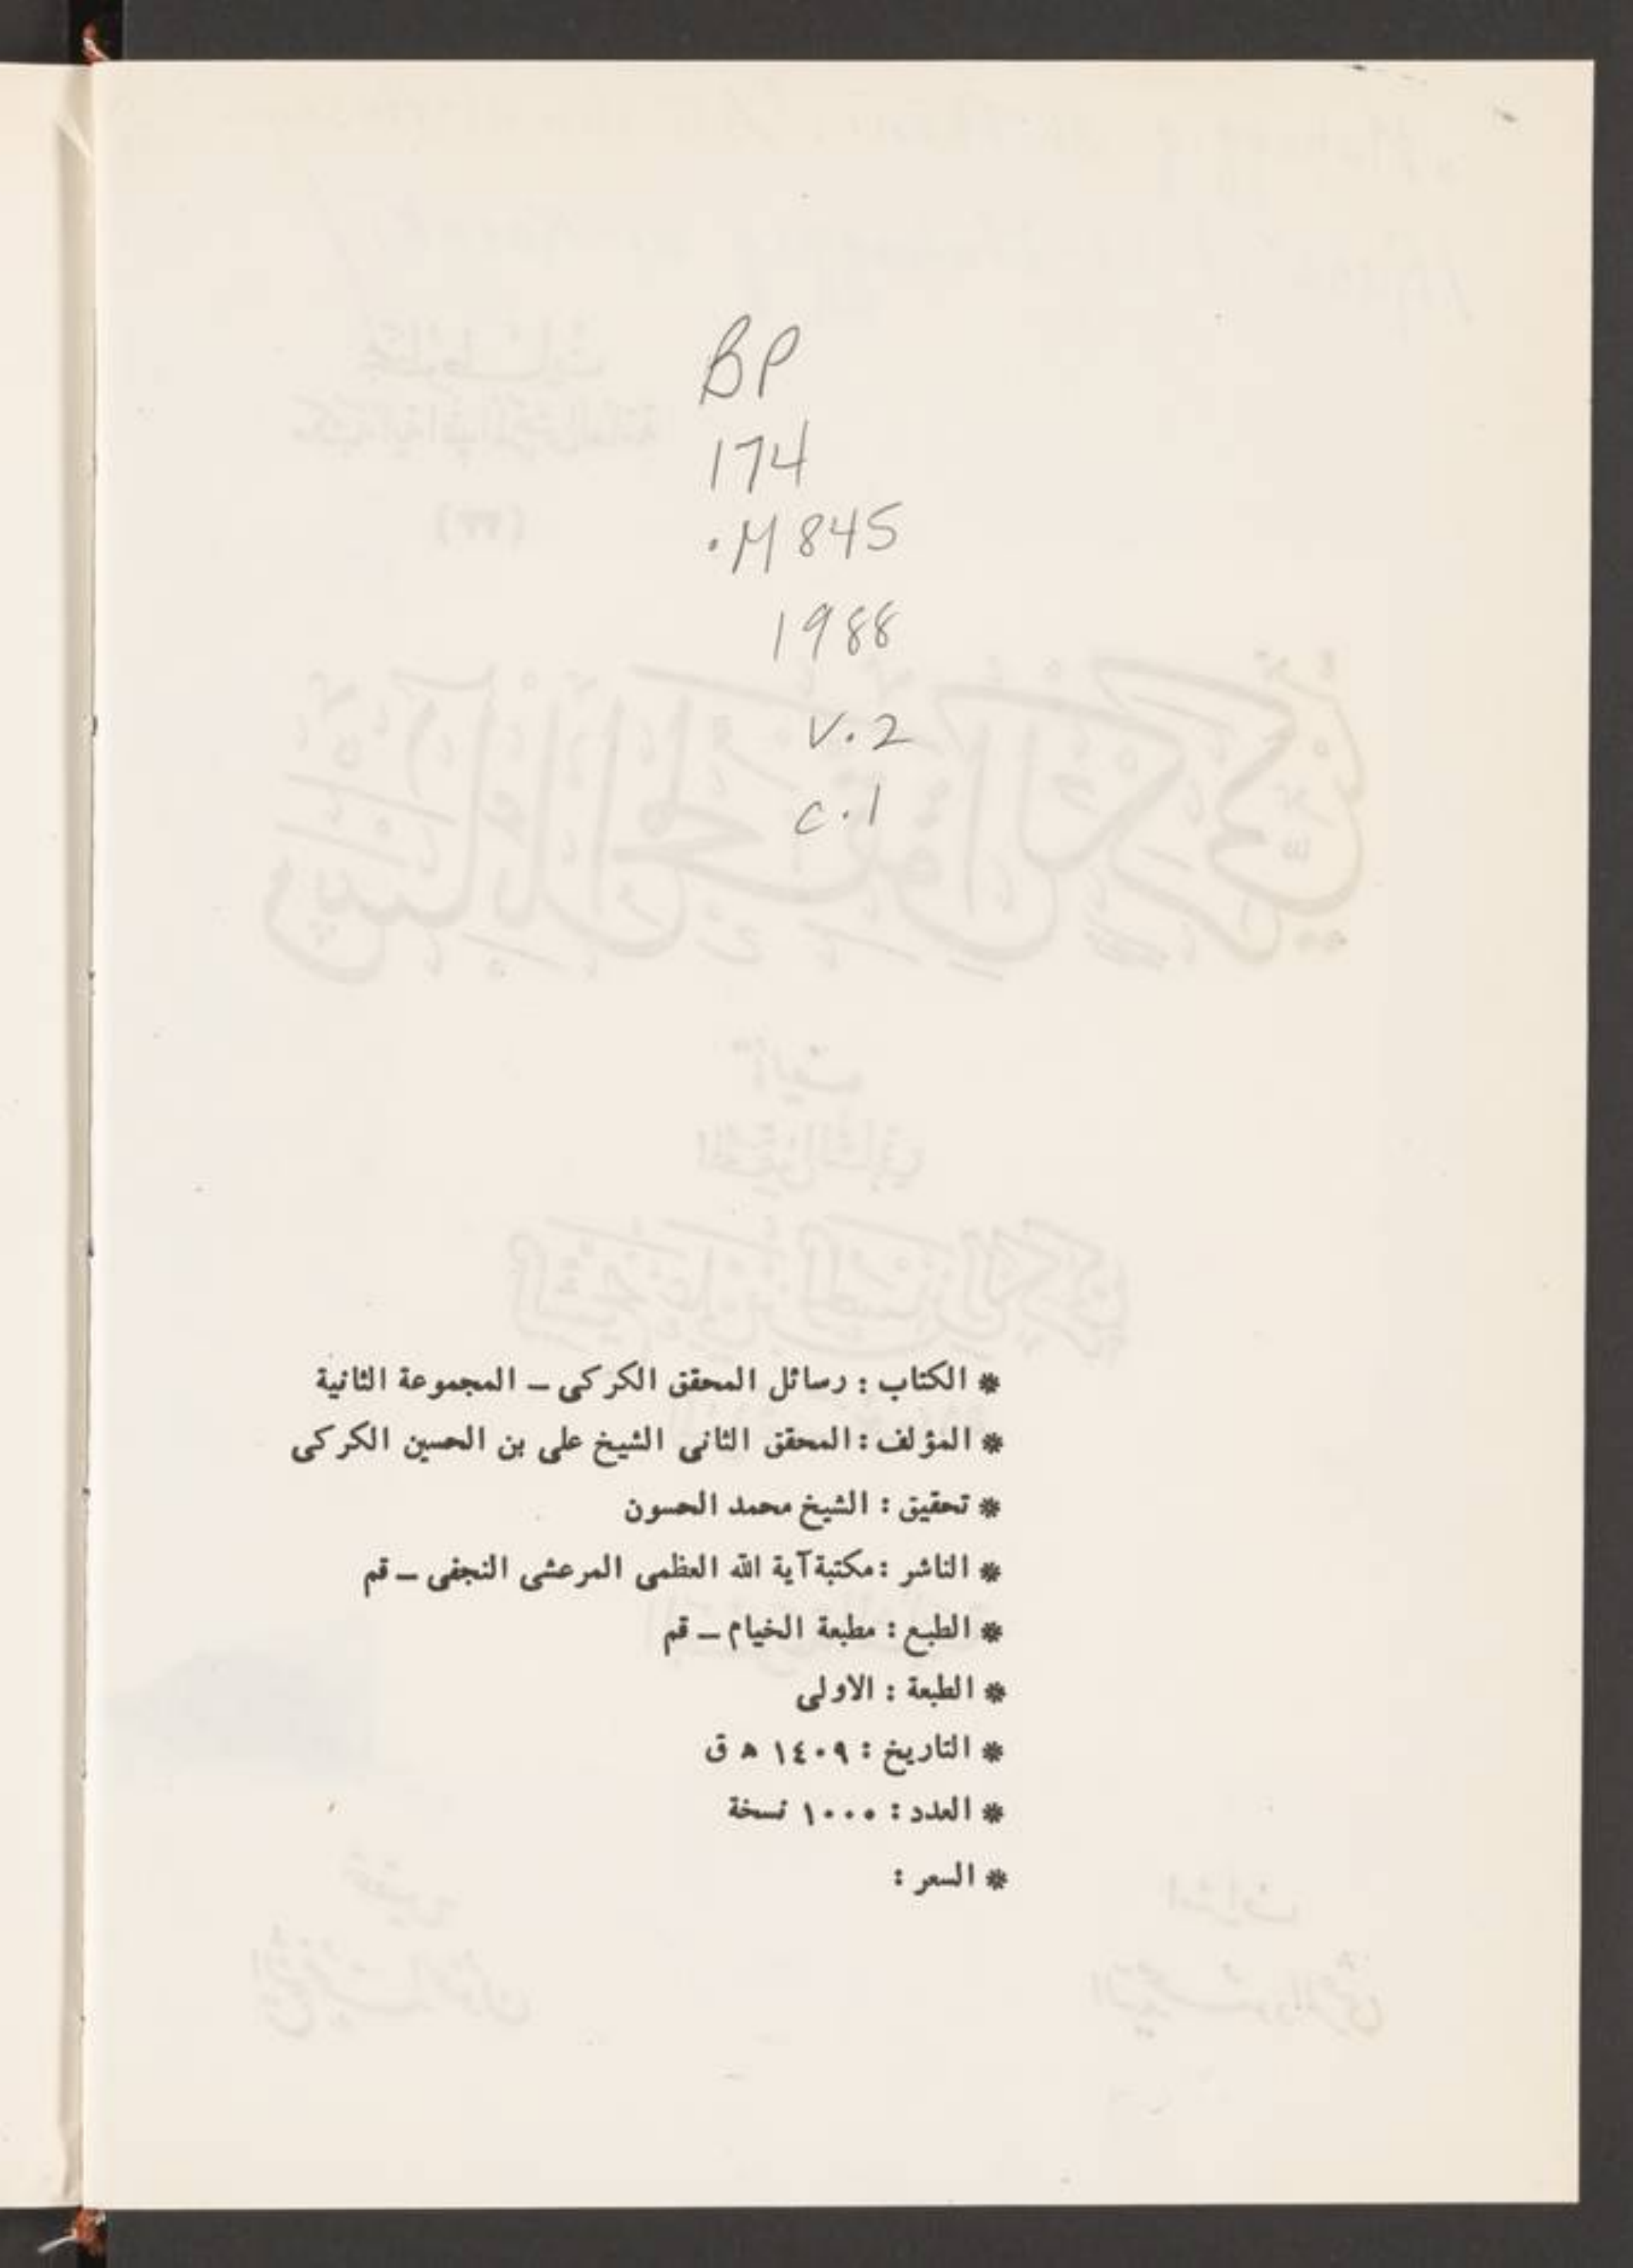 BP
174
.M845
1988
v.2
c.1
* الكتاب : رسائل المحقق الكركى ــ المجموعة الثانية
* المؤلف : المحقق الثانى الشيخ على بن الحسين الكركى
* تحقيق : الشيخ محمد الحسون
* الناشر : مكتبة آية الله العظمى المرعشى النجفى ــ قم
* الطبع : مطبعة الخيام ــ قم
* الطبعة : الاولى
* التاريخ : ١٤٠٩ ه ق
* العدد : ١٠٠٠ نسخة
* السعر :